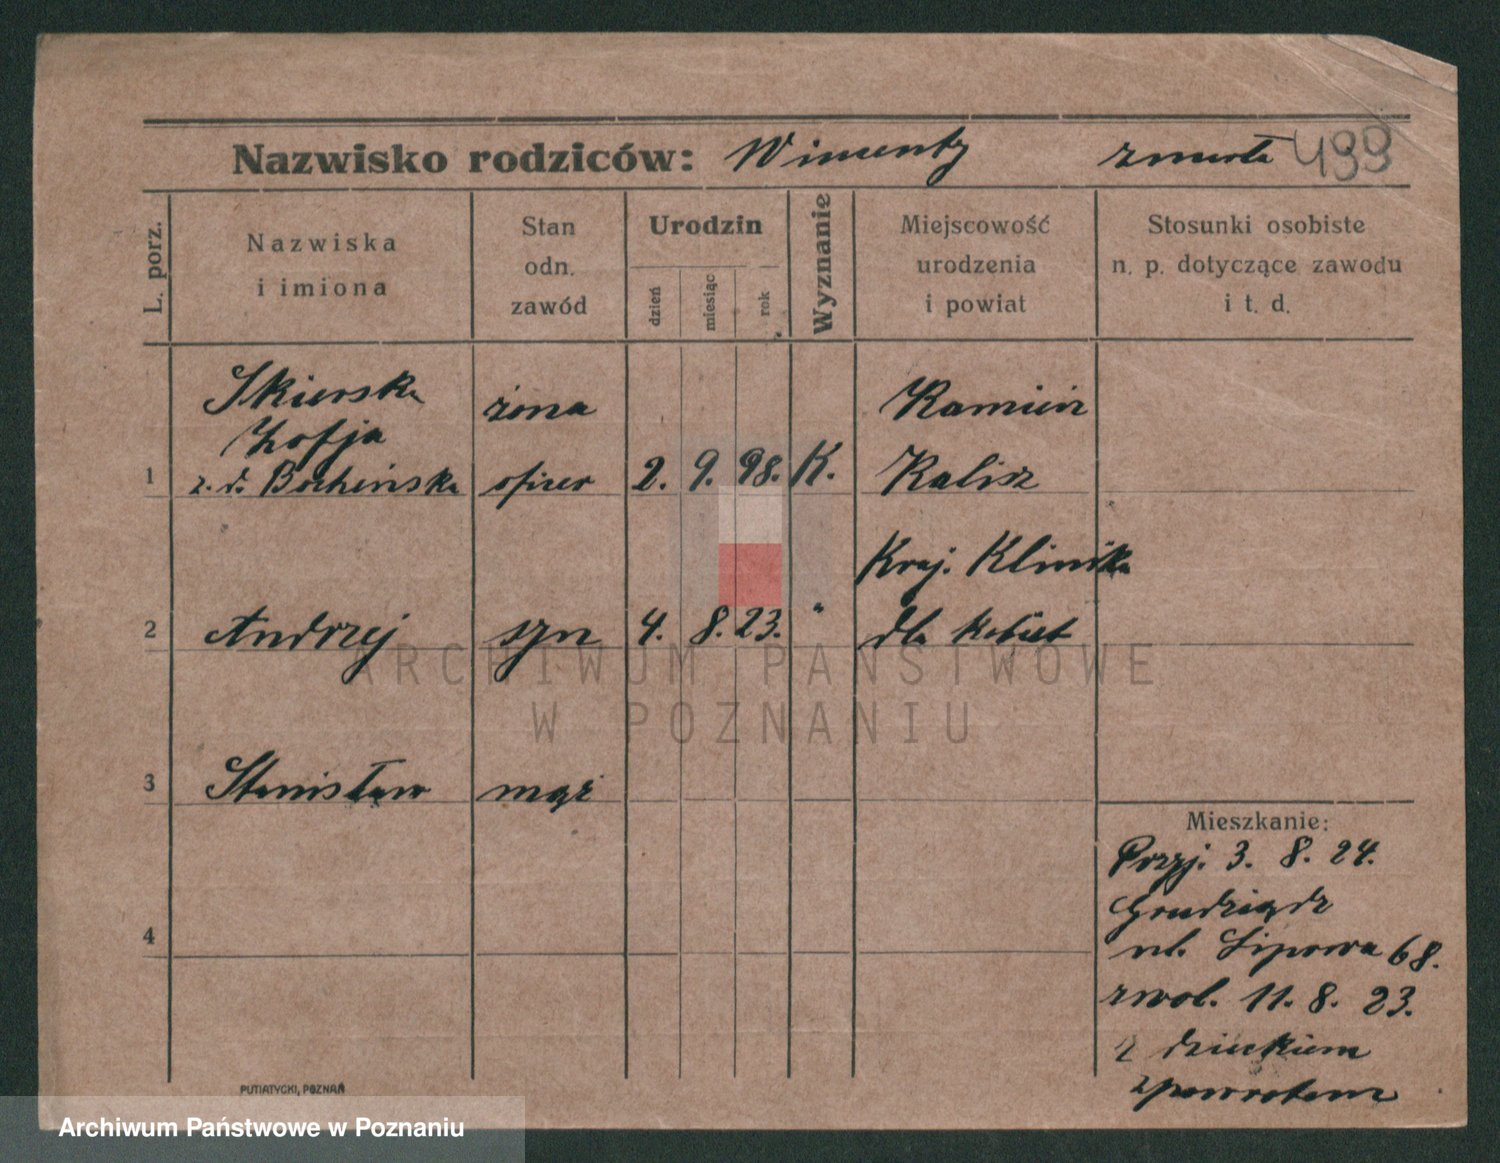 Nazwisko rodziców: Wincenty zmarła 499
L. porz.
Nazwiska
i imiona
Stan
odn.
zawód
Urodzin
dzień
miesiąc
rok
Wyznanie
Miejscowość
urodzenia
i powiat
Stosunki osobiste
n. p. dotyczące zawodu
i t. d.
Skierska żona Kamień
Zofja
1 z. d. Bocheńska oficer 2. 9. 98. K. Kalisz
Kraj. Klinika
2 Andrzej syn 4. 8. 23. " dla kobiet
3 Stanisław mąż
Mieszkanie:
Przyj. 3. 8. 24.
Grudziądz
4
ul. Lipowa 68.
zwol. 11. 8. 23.
z dzieckiem
zpowrotem
PUTIATYCKI, POZNAŃ
ARCHIWUM PAŃSTWOWE
W POZNANIU
Archiwum Państwowe w Poznaniu